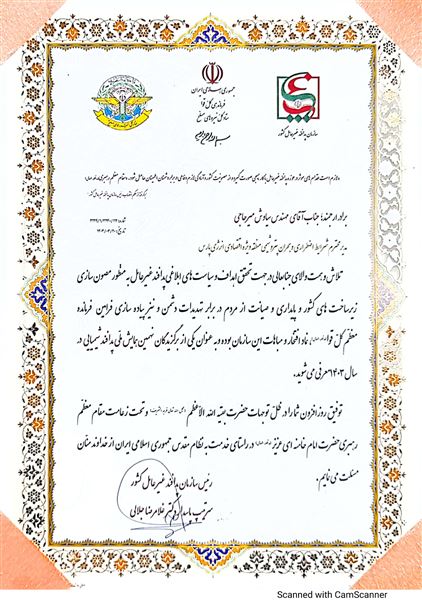 جمهوری اسلامی ایران
فرماندهی کل قوا
ستاد کل نیروهای مسلح
سازمان پدافند غیرعامل کشور
بسم الله الرحمن الرحیم
برادر ارجمند؛ جناب آقای مهندس سیاوش میرحاجی
مدیر محترم شرایط اضطراری و بحران پتروشیمی منطقه ویژه اقتصادی انرژی پارس
تلاش و همت والای جنابعالی در جهت تحقق اهداف و سیاست های ابلاغی پدافند غیرعامل به منظور مصون سازی
زیرساخت های کشور و پایداری و صیانت از مردم در برابر تهدیدات دشمن و نیز پیاده سازی فرامین فرمانده
معظم کل قوا نماد افتخار و مباهات این سازمان بوده و به عنوان یکی از برگزیدگان نهمین همایش ملی پدافند شیمیایی در
سال ۱۴۰۳ معرفی می شوید.
توفیق روز افزون شما را در ظل توجهات حضرت بقیه الله الاعظم و تحت زعامت مقام معظم
رهبری حضرت امام خامنه ای عزیز در راستای خدمت به نظام مقدس جمهوری اسلامی ایران از خداوند منان
مسئلت می نمایم.
رئیس سازمان پدافند غیرعامل کشور
سرتیپ پاسدار دکتر غلامرضا جلالی
Scanned with CamScanner